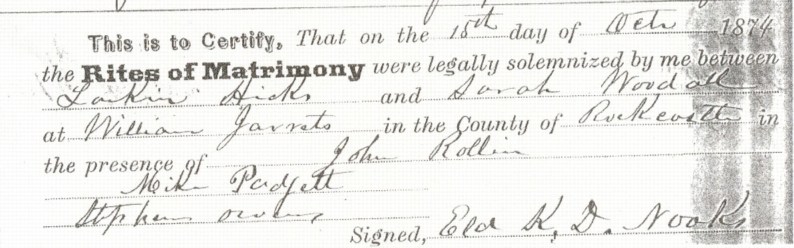 This is to Certify, That on the 15th day of Oct 1874
the Rites of Matrimony were legally solemnized by me between
Larkin Hicks and Sarah Woodall
at William Jarrets in the County of Rockcastle in
the presence of John Rollin
Mike Padgett
Stephen Owens
Signed, Eld K. D. Nooks